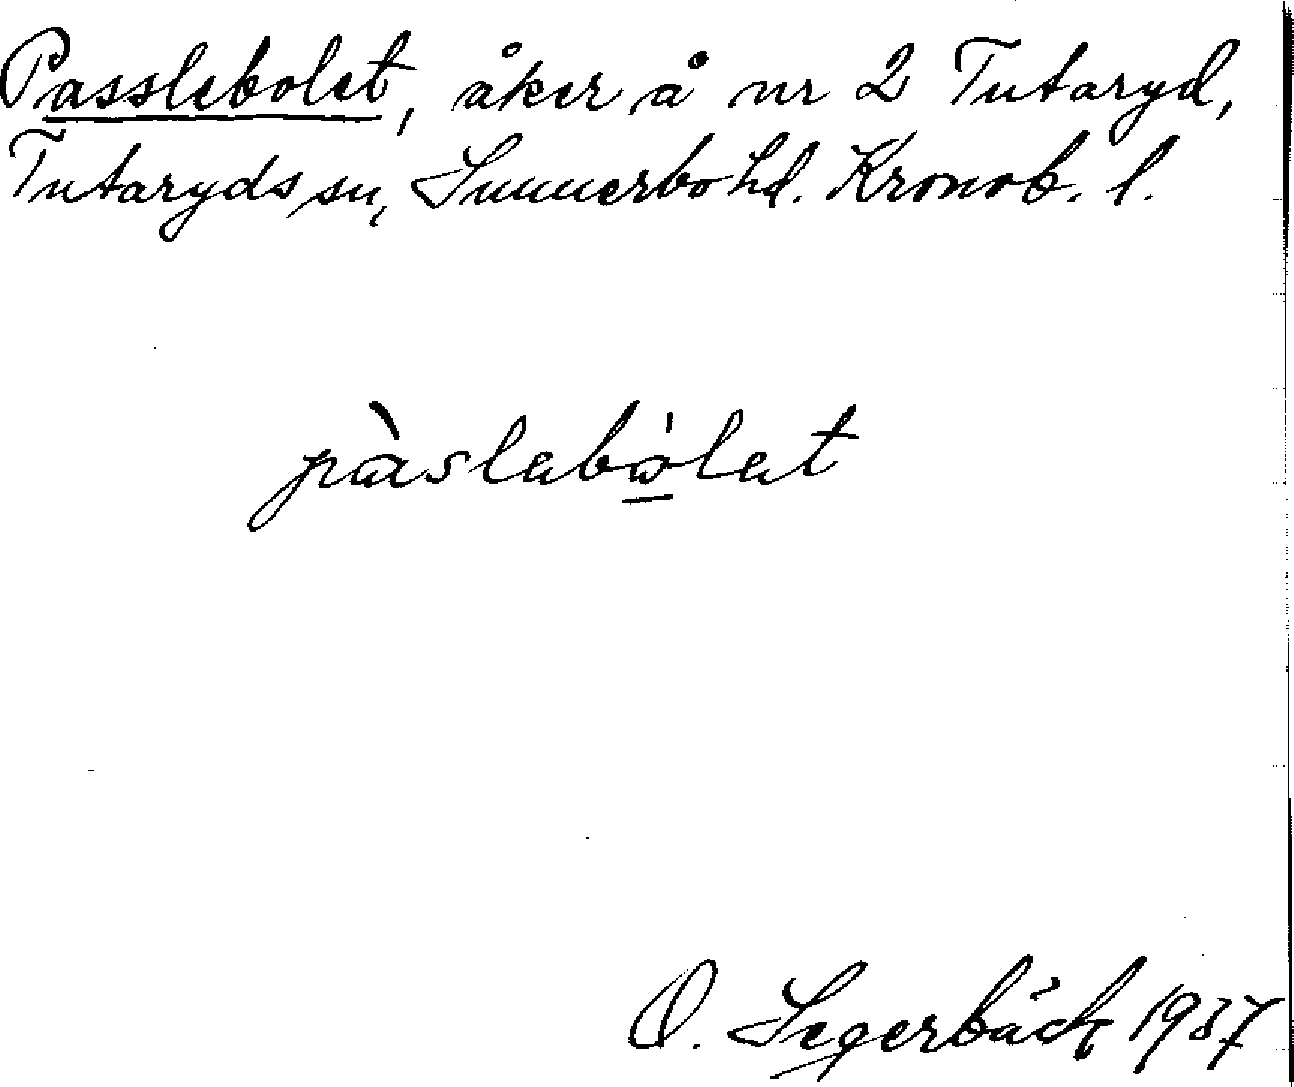 Passlebolet, åker å nr 2 Tutaryd,
Tutaryds sn, Sunnerbo hd. Kronob. l.
pàslabω̲̍lat
O. Segerbäck 1937